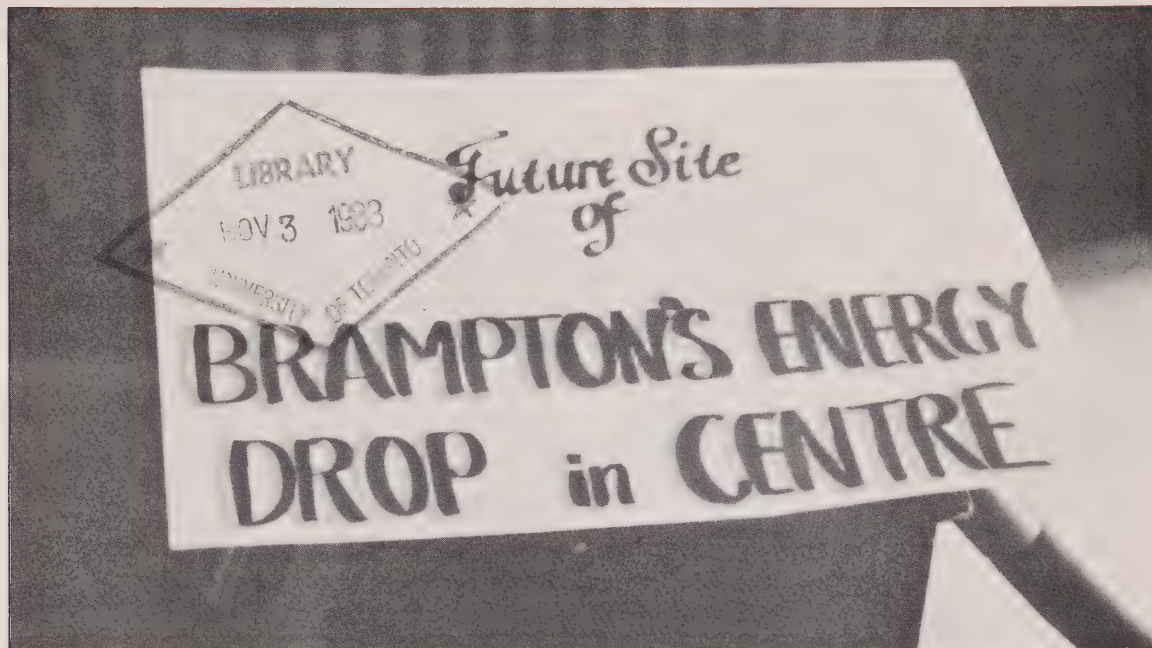 LIBRARY
NOV 3 1983
UNIVERSITY OF TORONTO
Future Site
of
BRAMPTON'S ENERGY
DROP in CENTRE